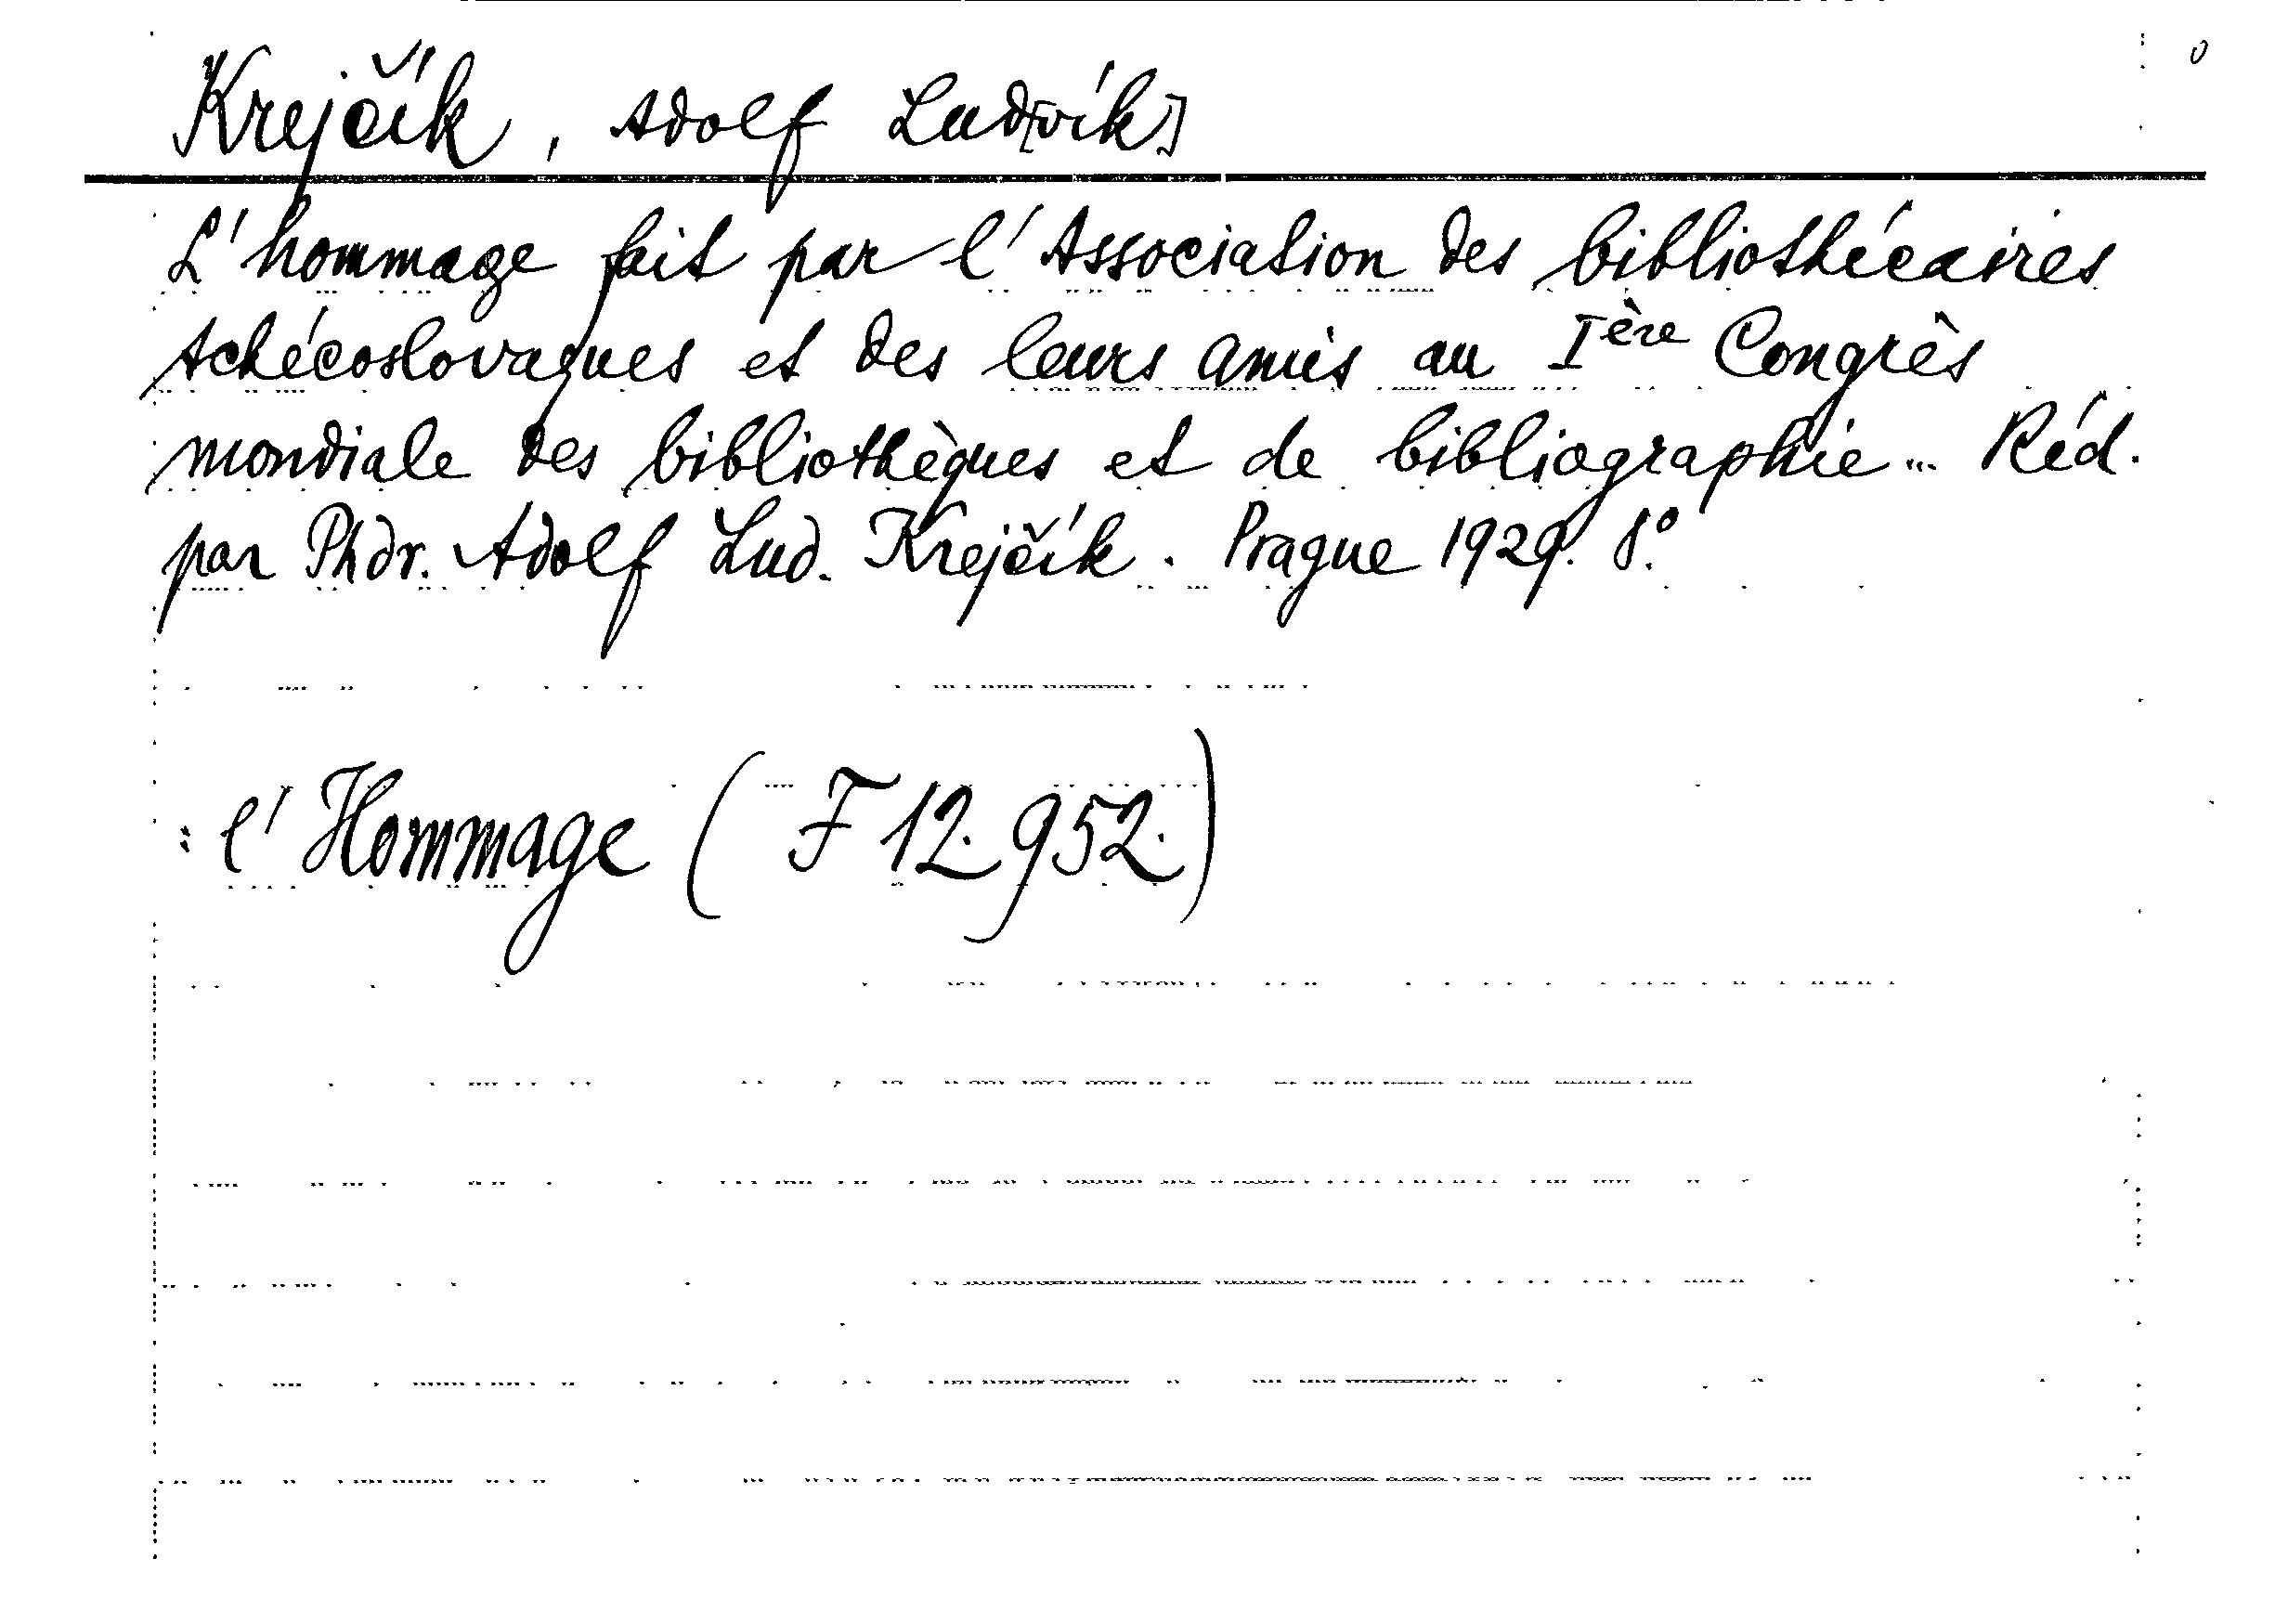 Krejčík, Adolf Lud[vík]
L'hommage fait par l'Association des bibliothécaires
tchécoslovaques et des leurs amis au Ière Congrès
mondiale des bibliothèques et de bibliographie... Réd.
par Phdr. Adolf Lud. Krejčík. Prague 1929. 8°.
: l'Hommage (F 12.952.)